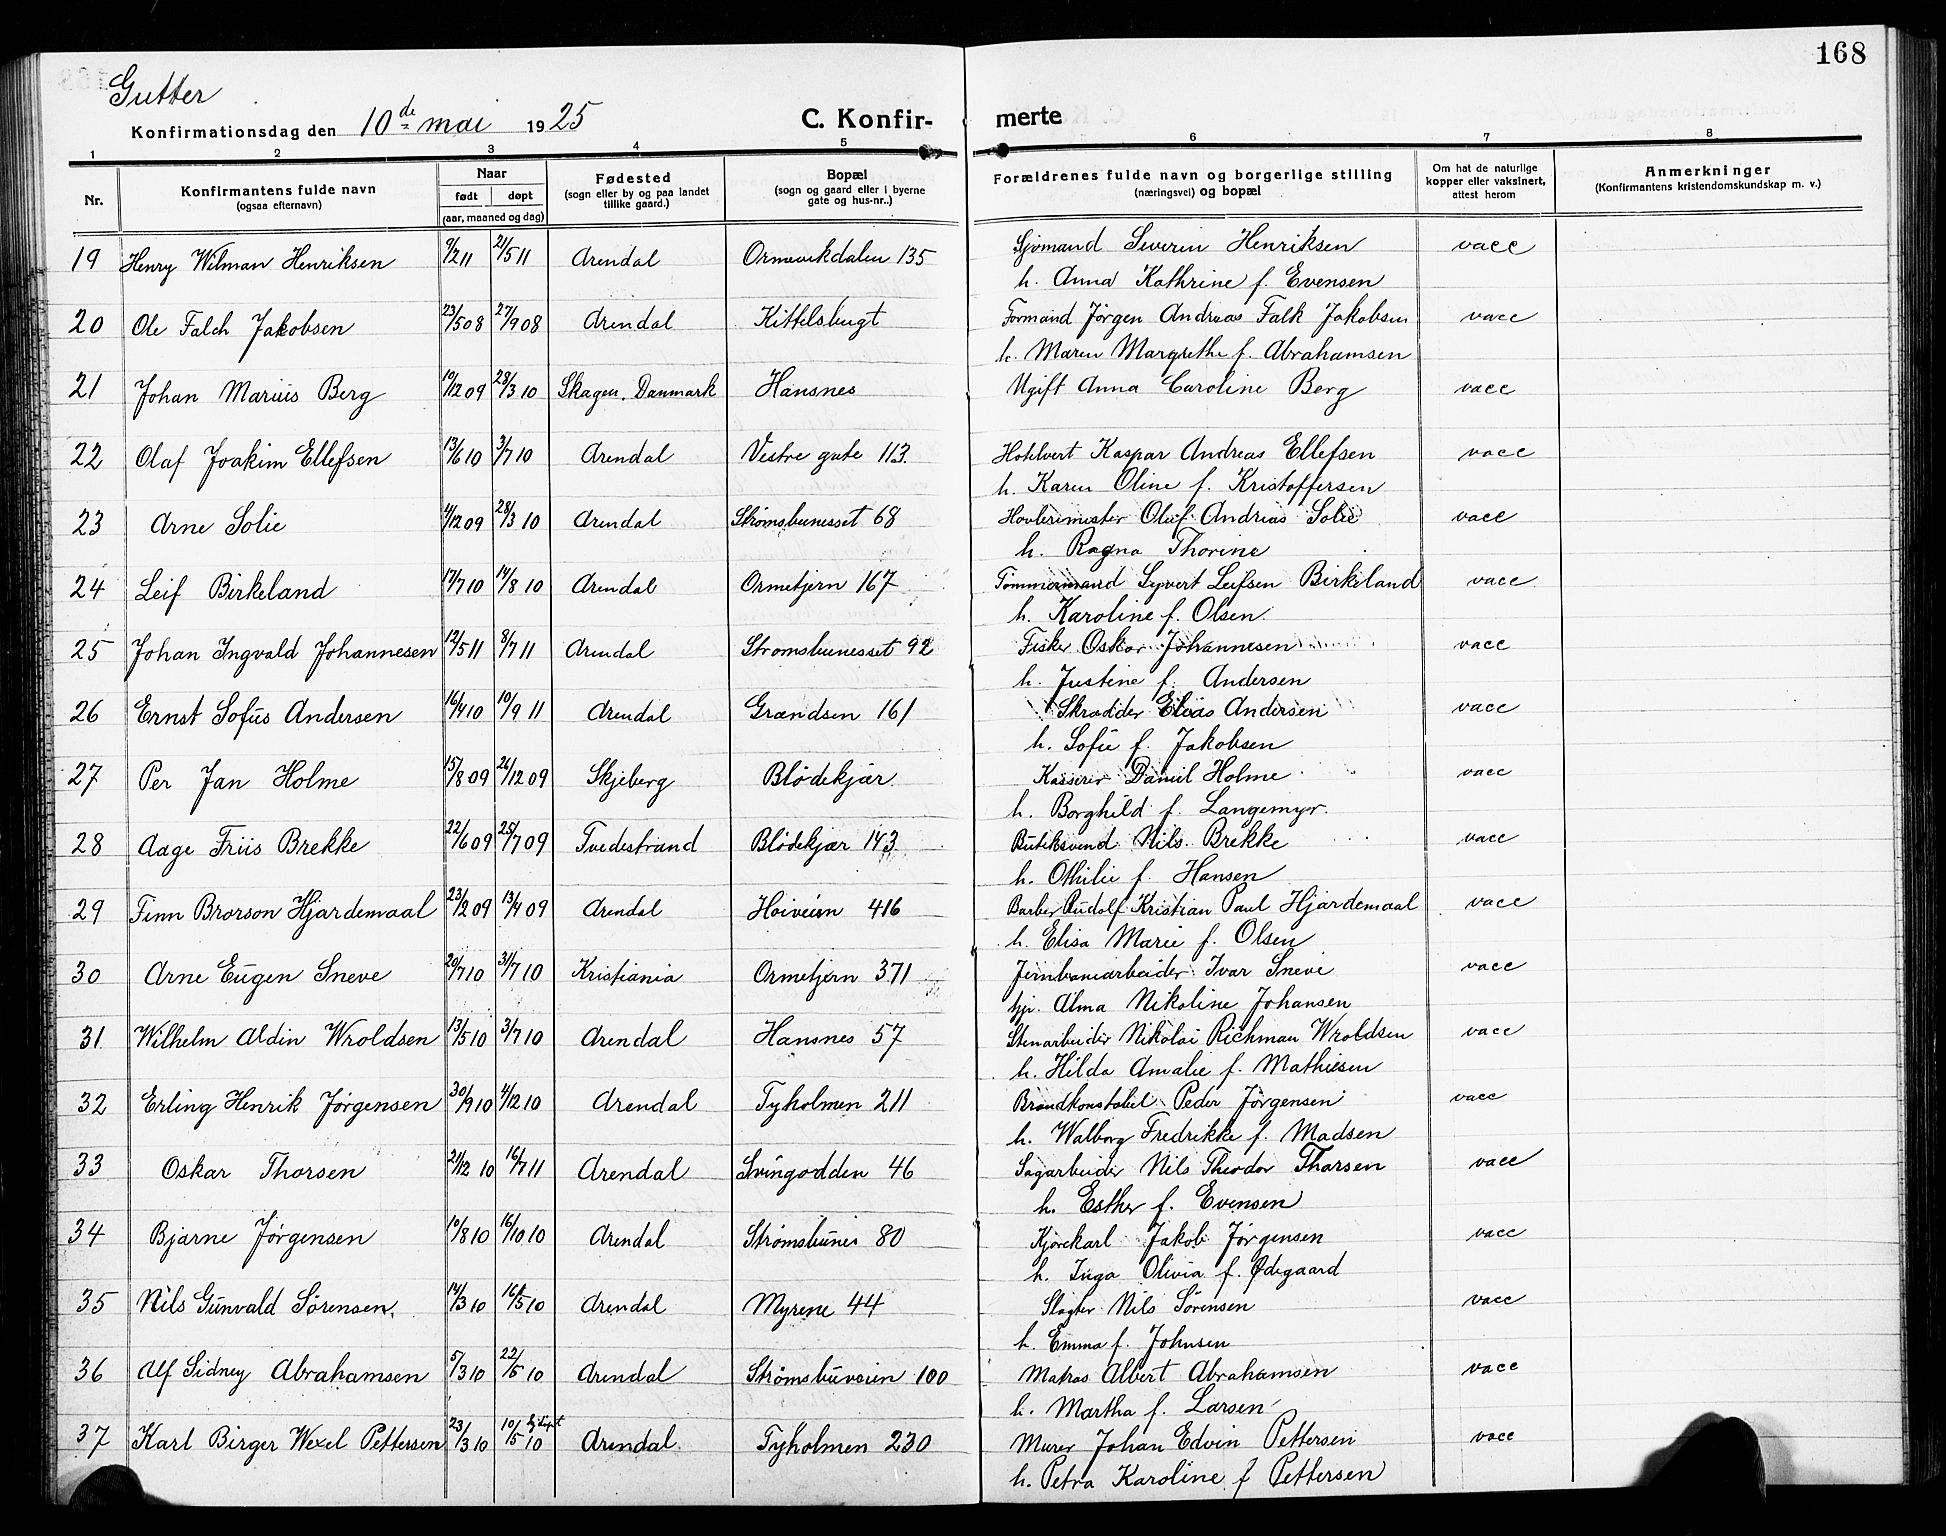 168
Gutter
Konfirmationsdag den 10de mai 1925
C. Konfir- merte
1 2 3 4 5 6 7 8
Nr.
Konfirmantens fulde navn
(ogsaa efternavn)
Naar
født døpt
(aar, maaned og dag)
Fødested
(sogn eller by og paa landet
tillike gaard.)
Bopæl
(sogn og gaard eller i byerne
gate og hus-nr..)
Forældrenes fulde navn og borgerlige stilling
(næringsvei) og bopæl
Om hat de naturlige
kopper eller vaksinert,
attest herom
Anmerkninger
(Konfirmantens kristendomskundskap m. v.)
19 Henry Wilman Henriksen 9/2 11 21/5 11 Arendal Ormevikdalen 135 Sjømand Severin Henriksen vacc
h. Anna Kathrine f. Evensen
20 Ole Falch Jakobsen 23/5 08 27/9 08 Arendal Kittelsbugt Formand Jørgen Andreas Falk Jakobsen vacc
h. Maren Margrethe f. Abrahamsen
21 Johan Marius Berg 10/12 09 28/3 10 Skagen, Danmark Hansnes Ugift Anna Caroline Berg vacc
22 Olaf Joakim Ellefsen 13/6 10 3/7 10 Arendal Vestre gate 113 Hotelvert Kaspar Andreas Ellefsen vacc
h. Karen Oline f. Kristoffersen
23 Arne Solie 4/12 09 28/3 10 Arendal Strømsbunesset 68 Høvlerimester Oluf Andrias Solie vacc
h. Ragna Thorine
24 Leif Birkeland 17/7 10 14/8 10 Arendal Ormetjern 167 Tømmermand Syvert Leifsen Birkeland vacc
h. Karoline f. Olsen
25 Johan Ingvald Johannesen 12/5 11 8/7 11 Arendal Strømsbunesset 92 Fisker Oskar Johannesen vacc
h. Justine f. Andersen
26 Ernst Sofus Andersen 16/4 10 10/9 11 Arendal Grændsen 161 Skrædder Elias Andersen vacc
h. Sofie f. Jakobsen
27 Per Jan Holme 15/8 09 26/12 09 Skjeberg Blødekjær Kasserer Daniel Holme vacc
h. Borghild f. Langemyr
28 Aage Friis Brekke 22/6 09 25/7 09 Tvedestrand Blødekjær 143 Butiksvend Nils Brekke vacc
h. Othilie f. Hansen
29 Finn Brorson Hjardemaal 23/2 09 13/4 09 Arendal Høiveien 416 Barber Rudolf Kristian Paul Hjardemaal vacc
h. Elisa Marie f. Olsen
30 Arne Eugen Sneve 20/7 10 31/7 10 Kristiania Ormetjern 371 Jernbanearbeider Ivar Sneve vacc
hjr. Alma Nikoline Johansen
31 Wilhelm Aldin Wroldsen 13/5 10 3/7 10 Arendal Hansnes 57 Stenarbeider Nikolai Richman Wroldsen vacc
h. Hilda Amalie f. Mathiesen
32 Erling Henrik Jørgensen 30/9 10 4/12 10 Arendal Tyholmen 211 Brandkonstabel Peder Jørgensen vacc
h. Walborg Fredrikke f. Madsen
33 Oskar Thorsen 21/12 10 16/7 11 Arendal Svingodden 46 Sagarbeider Nils Theodor Thorsen vacc
h. Esther f. Evensen
34 Bjarne Jørgensen 10/8 10 16/10 10 Arendal Strømsbunes 80 Kjørekarl Jakob Jørgensen vacc
h. Inga Olivia f. Ødegaard
35 Nils Gunvald Sørensen 14/3 10 16/5 10 Arendal Myrene 44 Slagter Nils Sørensen vacc
h. Emma f. Johnsen
36 Alf Sidney Abrahamsen 5/3 10 22/5 10 Arendal Strømsbuveien 100 Matros Albert Abrahamsen vacc
h. Martha f. Larsen
37 Karl Birger Wexel Pettersen 23/3 10 10/5 10 Arendal Tyholmen 230 Murer Johan Edvin Pettersen vacc
h. Petra Karoline f Pettersen